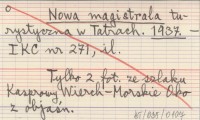 Nowa magistrala tu-
rystyczna w Tatrach. 1937. -
IKC nr 271, il.
Tylko 2 fot. ze szlaku
Kasprowy Wierch-Morskie Oko
z objaśn.